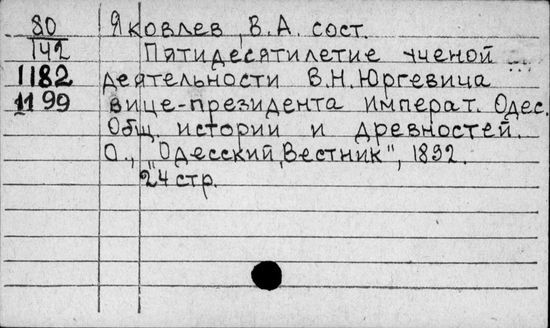 80 Яковлев, В.А. сост.
142 Пятидесятилетие ученой ...
1182 деятельности В.Н. Юргевича
1199 вице-президента императ. Одес.
Общ. истории и древностей.
О., "Одесский Вестник", 1892.
24 стр.